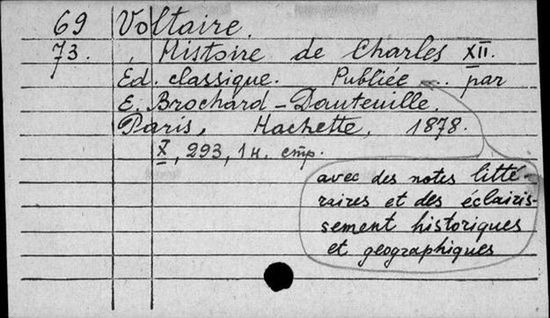 69 Voltaire.
73. , Histoire de Charles XII.
Ed. classique. Publiée ... par
E. Brochard-Dauteuille.
Paris, Hachette, 1878.
X, 293, 1 н. стр.
avec des notes litté-
raires et des éclairis-
sement historiques
et geographiques